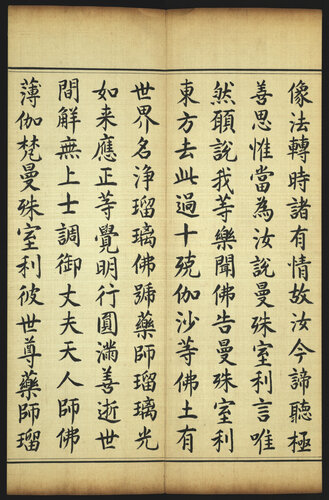 像法轉時諸有情故汝今諦聽極
善思惟當為汝說曼殊室利言唯
然願說我等樂聞佛告曼殊室利
東方去此過十殑伽沙等佛土有
世界名淨瑠璃佛號藥師瑠璃光
如来應正等覺明行圓滿善逝世
間解無上士調御丈夫天人師佛
薄伽梵曼殊室利彼世尊藥師瑠